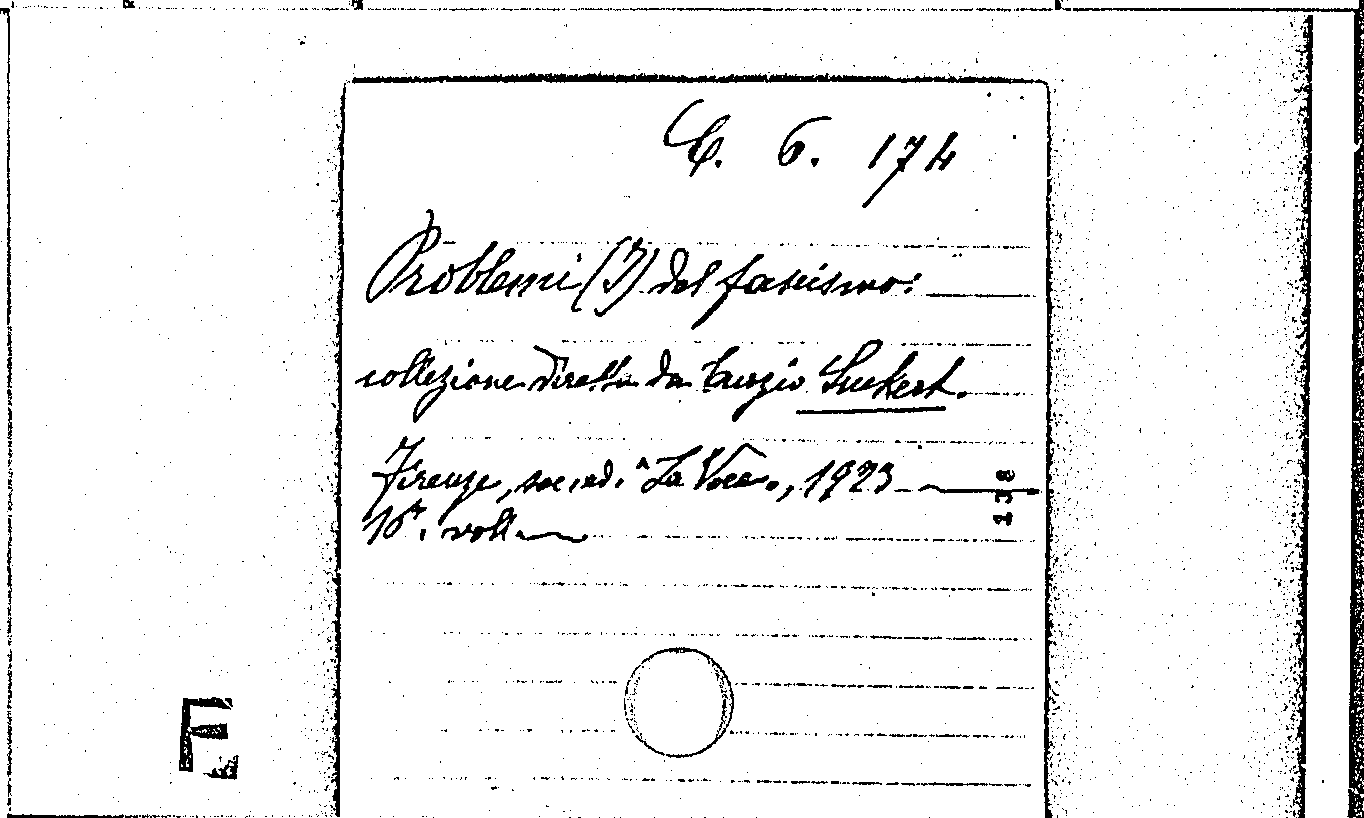 C. 6. 174
Problemi (I) del fascismo:
collezione diretta da Curzio Suckert.
Firenze, soc. ed. "La Voce", 1923
16°. voll.
138